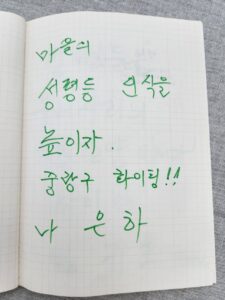 마을의
성평등 인식을
높이자.
중랑구 화이팅!!
나 은 하